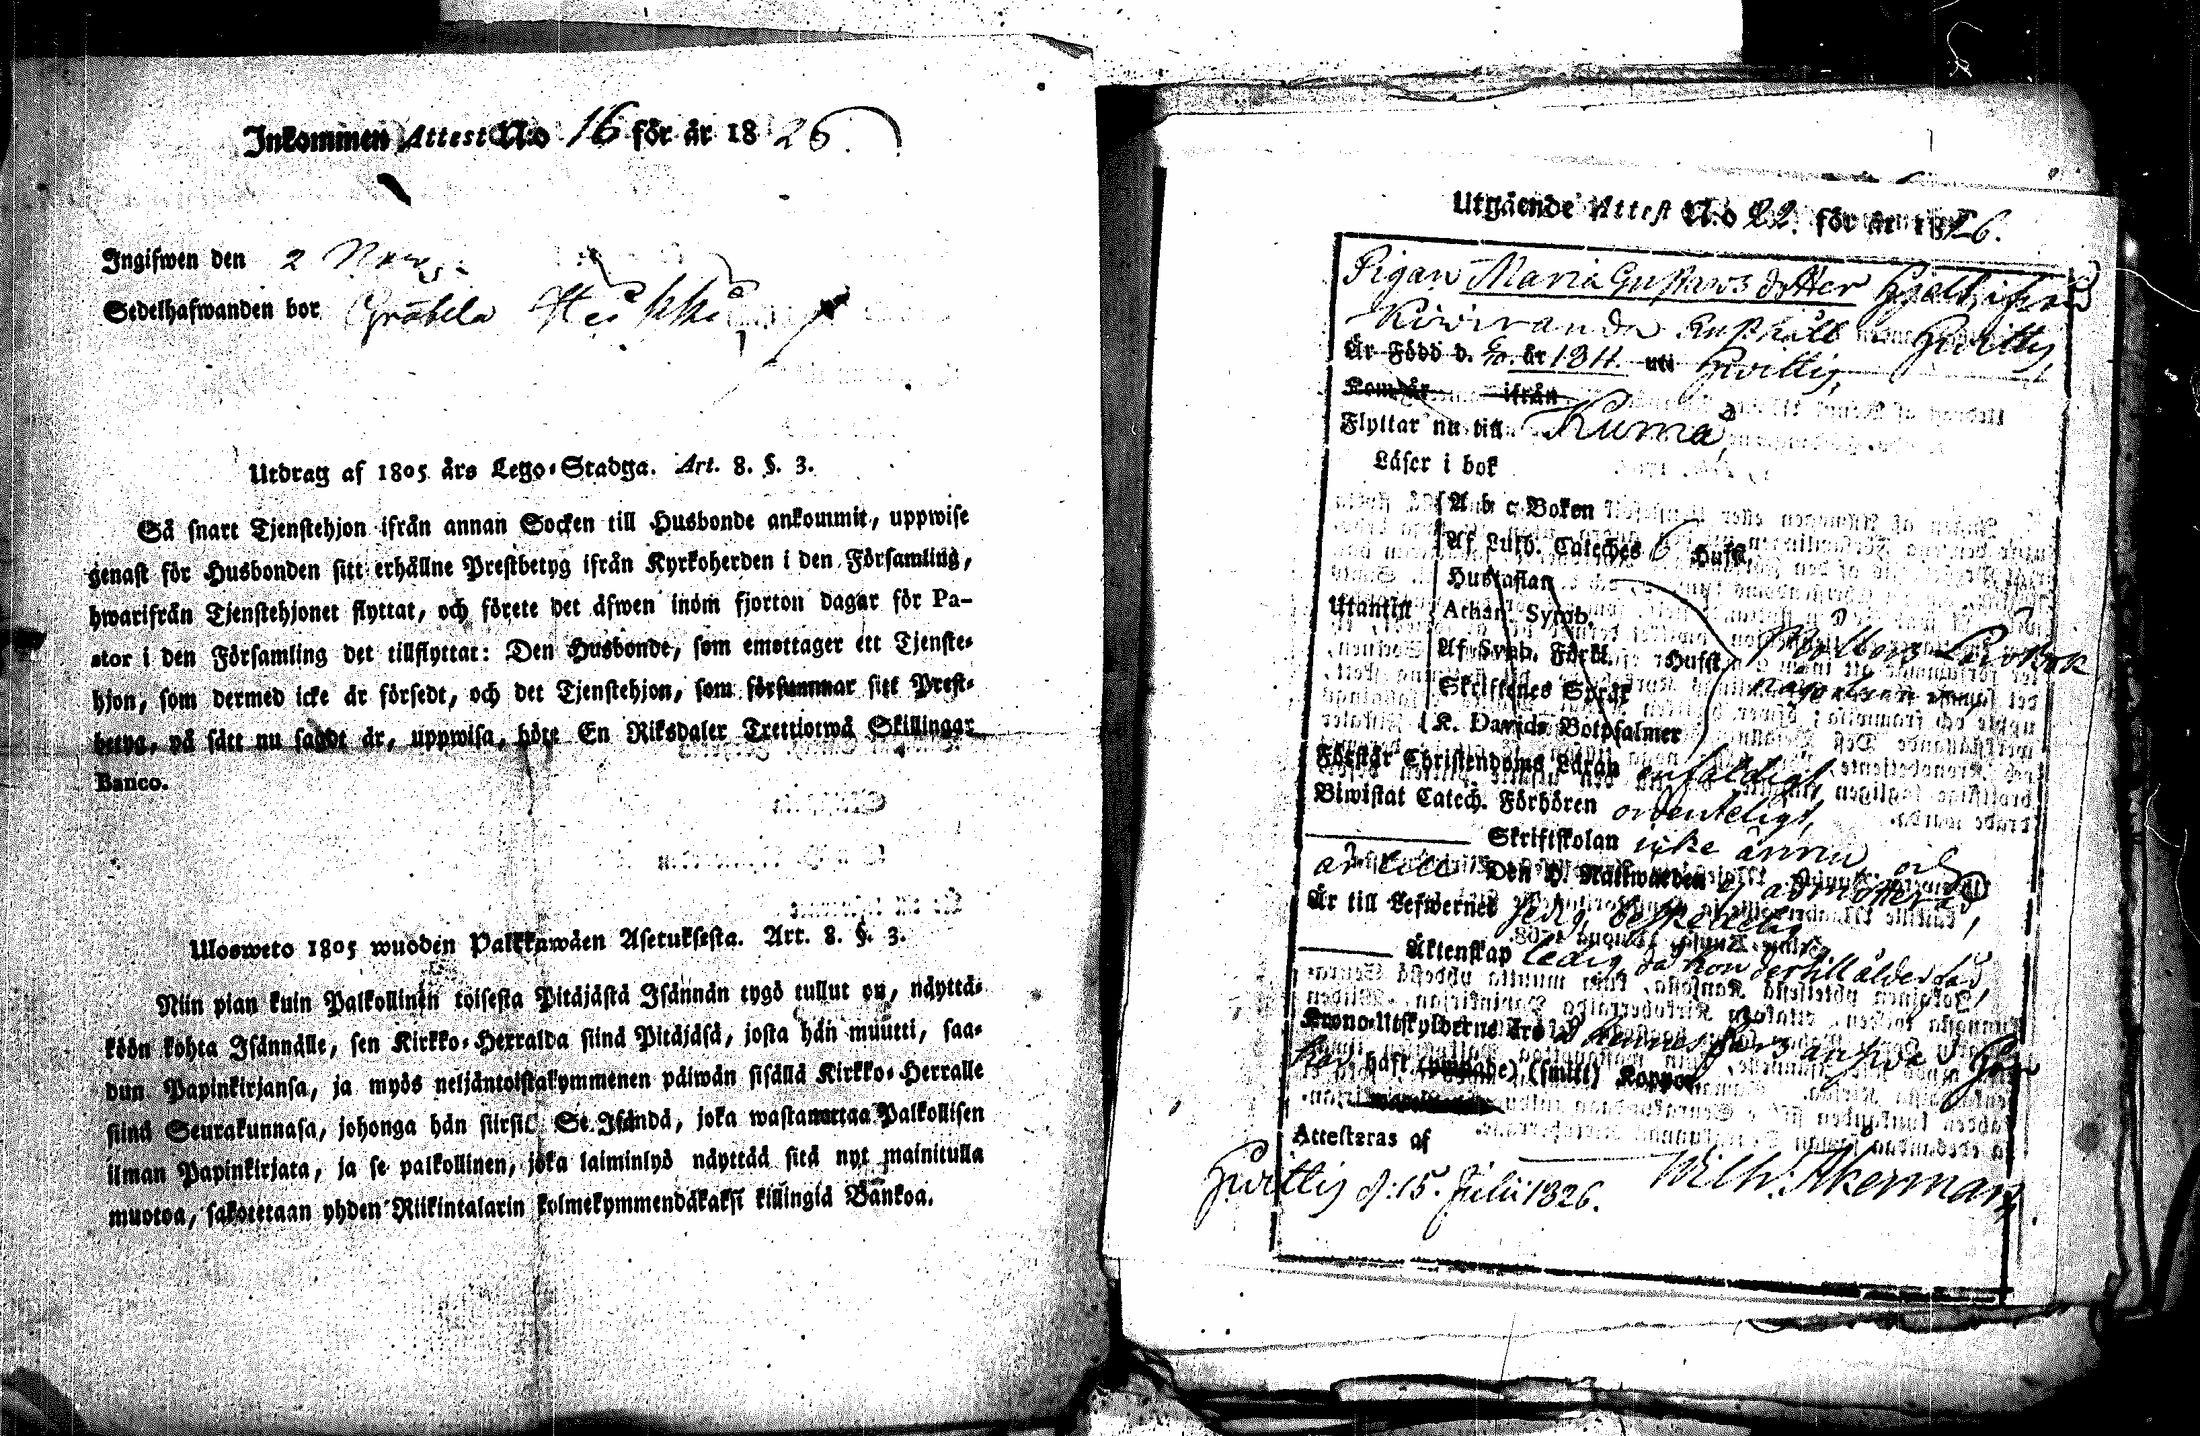 Inkommen Attest N:o 16 för år 1826.
Ingifwen den 2 Nov.
Sedelhafwanden bor
Utdrag af 1805 års Lego-Stadga. Art. 8. §. 3.
Så snart Tjenstehjon ifrån annan Socken till Husbonde ankommit, uppwise
genast för Husbonden sitt erhållne Prestbetyg ifrån Kyrkoherden i den Församling,
hwarifrån Tjenstehjonet flyttat, och förete det äfwen inom fjorton dagar för Pa-
stor i den Församling det tillflyttat: Den Husbonde, som emottager ett Tjenste-
hjon, som dermed icke är försedt, och det Tjenstehjon, som försummar sitt Prest-
betyg, på sätt nu sagdt är, uppwisa, böte En Riksdaler Trettiotwå Skillingar
Banco.
Ulosweto 1805 wuoden Palkkawäen Asetuksesta. Art. 8. §. 3.
Niin pian kuin Palkollinen toisesta Pitäjästä Isännän tygö tullut on, näyttä-
köön kohta Isännälle, sen Kirkko-Herralda siinä Pitäjäsä, josta hän muutti, saa-
dun Papinkirjansa, ja myös neljäntoistakymmenen päiwän sisällä Kirkko-Herralle
siinä Seurakunnasa, johonga hän siirsi: Se Isändä, joka wastanottaa Palkollisen
ilman Papinkirjata, ja se palkollinen, joka laiminlyö näyttää sitä nyt mainitulla
muotoa, sakotetaan yhden Riikintalarin kolmekymmendäkaksi killingiä Bankoa.
Utgående Attest N:o 22. för år 1826.
Pigan Maria Gustavs dotter
Kiviranda Hvittis,
Är Född d. år 1811. uti Hvittis,
Kom år ifrån
Flyttar nu till Kumå,
Läser i bok
A b c Boken
Af Luth. Cateches 6 Hufst.
Hustaflan
Utantill Athan. Symb.
Af Symb. Förkl. Hufst.
Skriftenes Språk
K. Davids Botpsalmer
Förstår Christendoms Läran enfaldigt,
Biwistat Catech. Förhören ordenteligt,
Skriftskolan icke ännu och
Den H. Nattwarden ej admitterad
Är till Lefwernet
Äktenskap ledig, då hon dertill ålder
Krono-Utskylderne
haft (smitt) Koppor.
Attesteras af
Hvittis d. 15. Julii 1826. Wilh. Åkerman